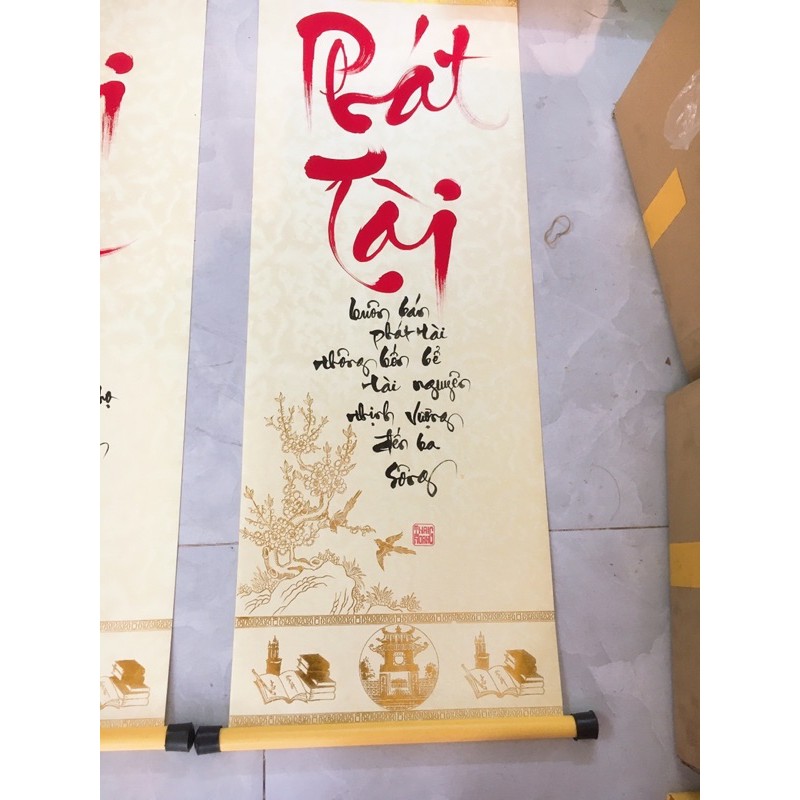 Phát
Tài
buôn bán
phát tài
thông bốn bể
tài nguyên
thịnh vượng
đến ba
sông